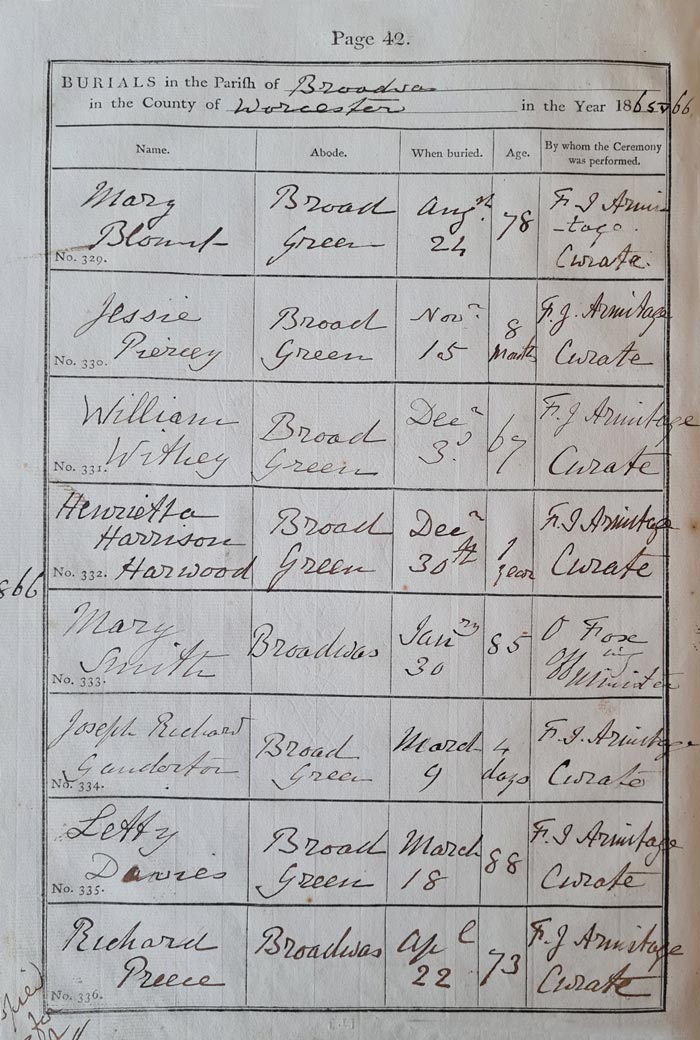 Page 42.
BURIALS in the Parish of Broadwas
in the County of Worcester in the Year 1865 & 66
Name. Abode. When buried. Age. By whom the Ceremony was performed.
Mary Broad Augst 78 F. J Armi-
Blount Green 24 -tage.
No. 329. Curate.
Jessie Broad Novr 8 F. J. Armitage
No. 330. Piercy Green 15 Months Curate
William Broad Decr 67 F. J Armitage
No. 331. Withey Green 3. Curate
Henrietta Broad Decr 1 F. J Armitage
Harrison Green 30th year Curate
No. 332. Harwood
1866
Mary Broadwas Janry 85 O Fox
Smith 30 Offg Minister
No. 333.
Joseph Richard Broad March 4 F. J. Armitage
Ganderton Green 9 days Curate
No. 334.
Letty Broad March 88 F. J Armitage
No. 335. Davies Green 18 Curate
Richard Broadwas Apl 73 F. J Armitage
Preece 22 Curate
No. 336.